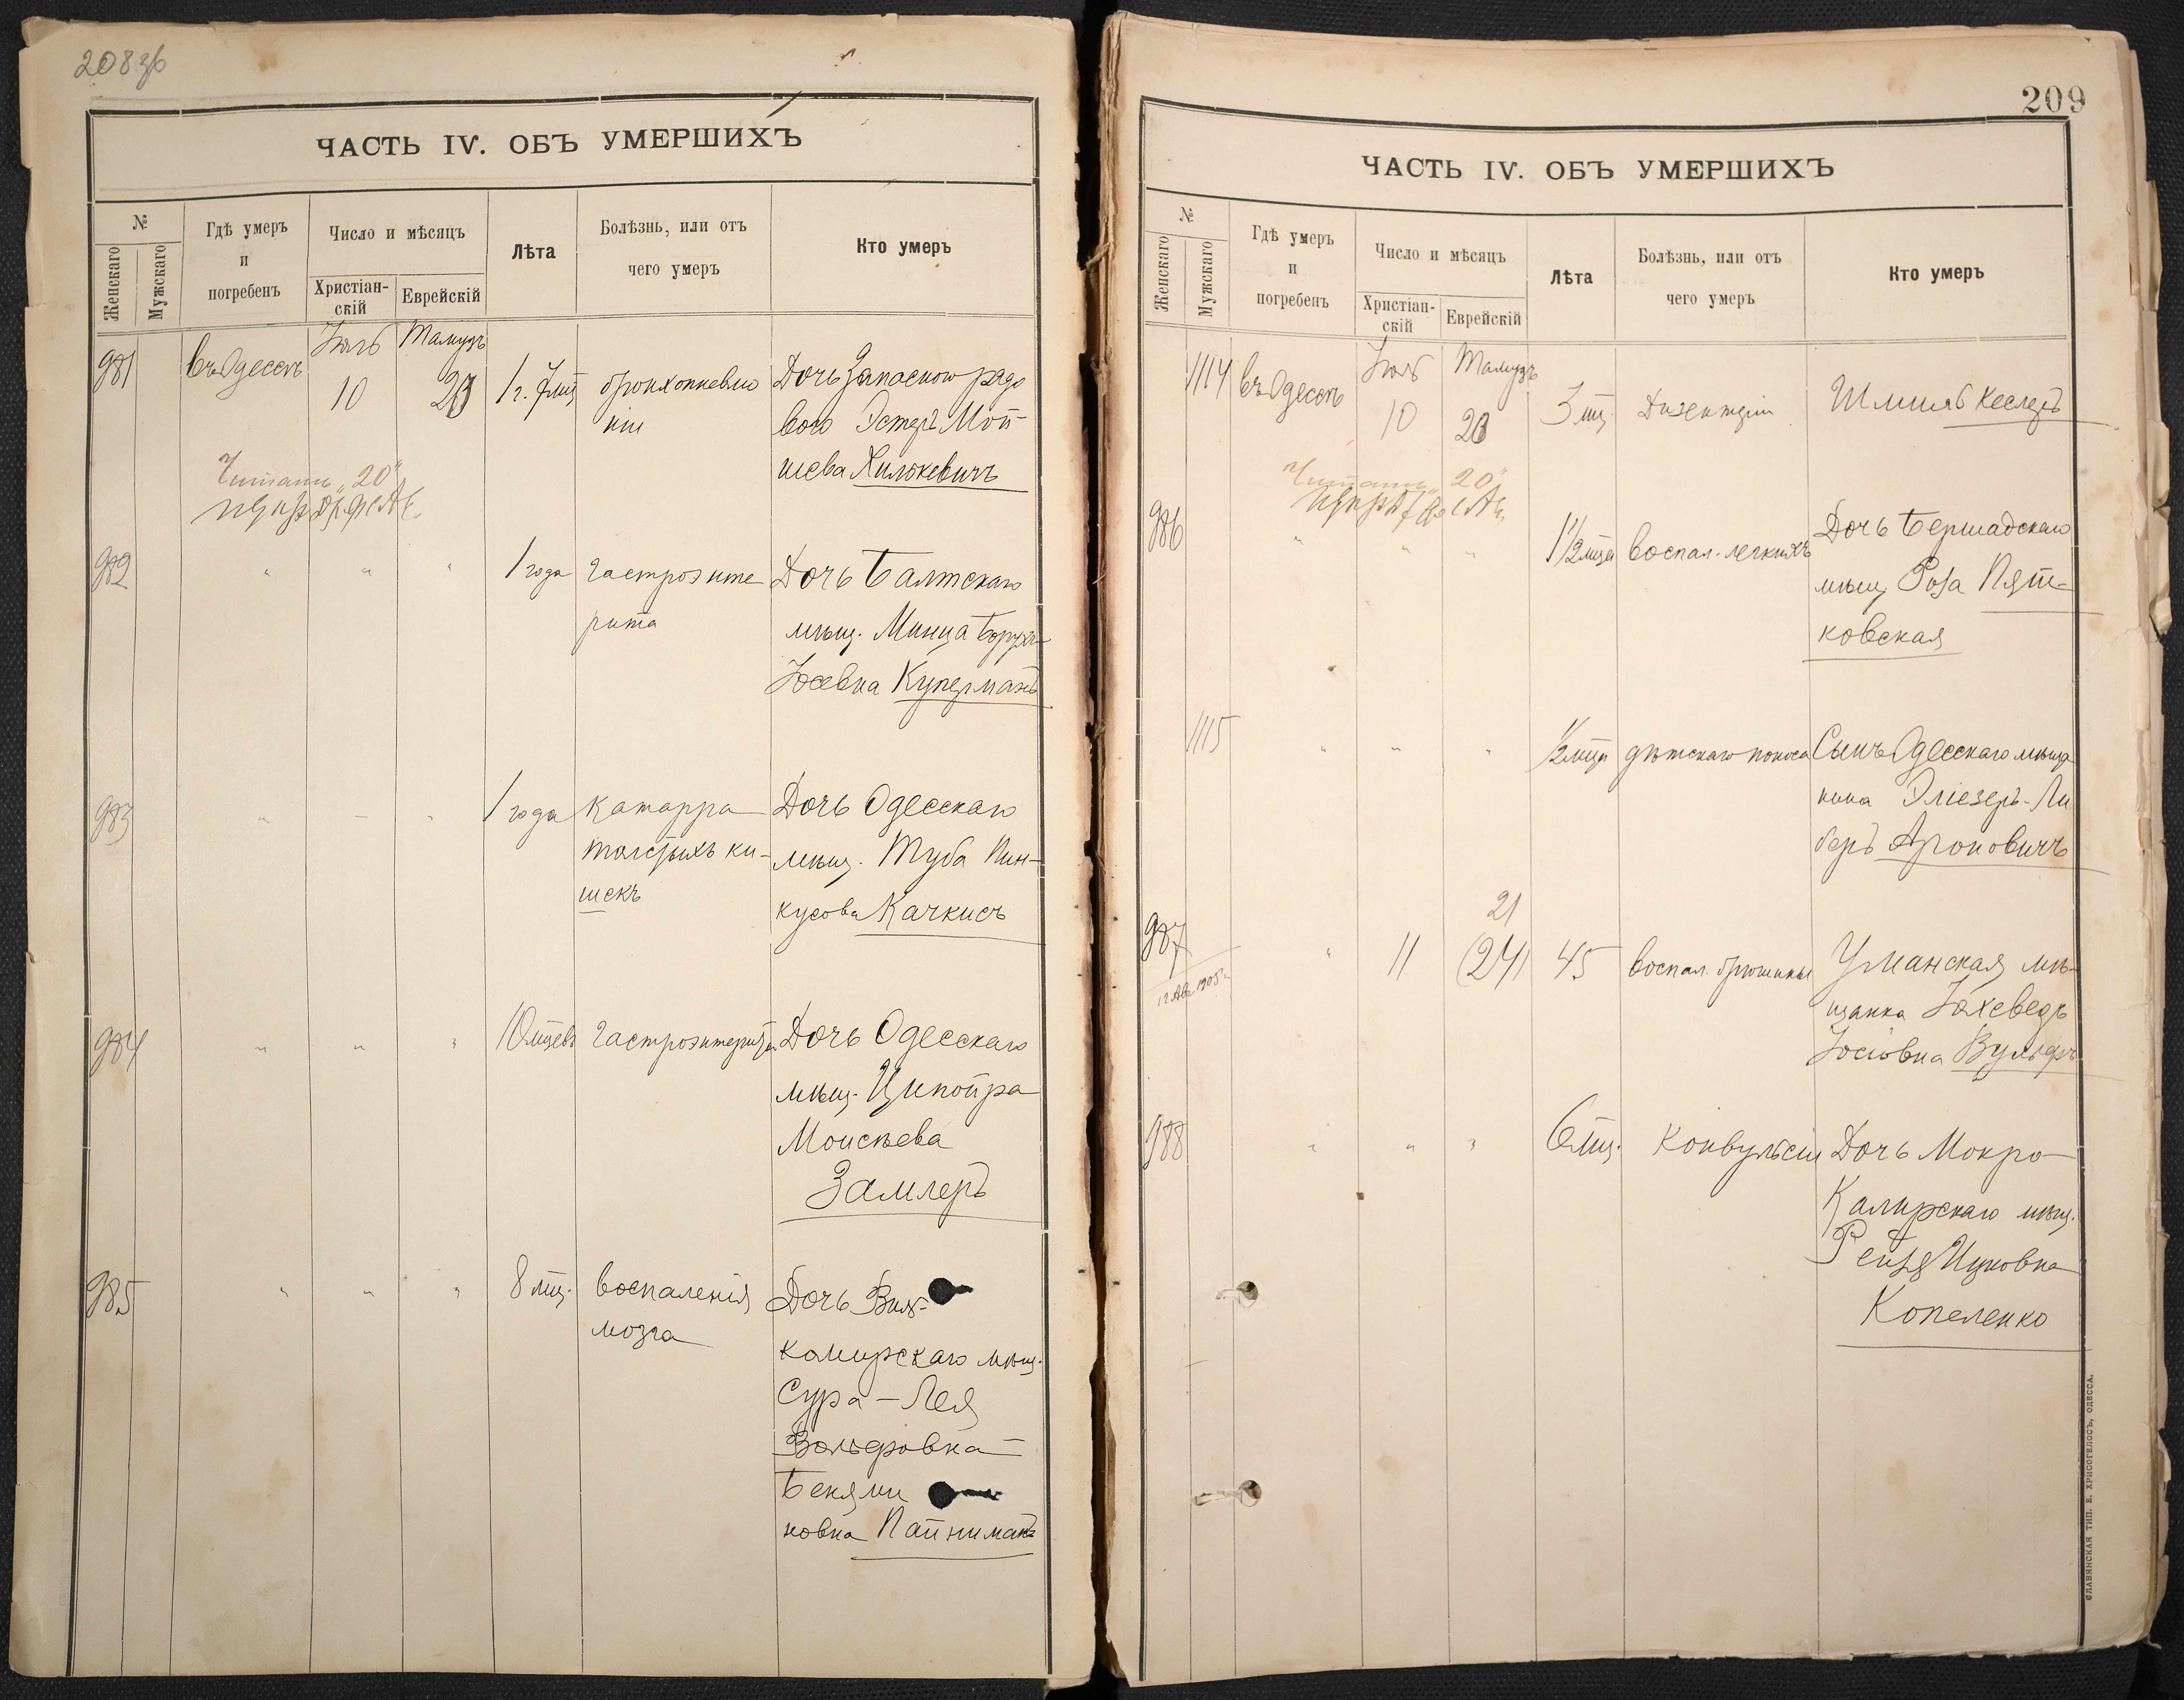 208 зв
ЧАСТЬ IV. ОБЪ УМЕРШИХЪ
№
Женскаго
Мужскаго
Гдѣ умеръ
и
погребенъ
Число и мѣсяцъ
Христіан-
скій
Еврейскій
Лѣта
Болѣзнь, или отъ
чего умеръ
Кто умеръ
981
въ Одессѣ
Іюль
10
Тамузъ
20
1 г. 7 мц
бронхопневмо
ніи
Дочь Запасного рядо
вого Эстеръ Мой-
шева Хилькевичъ
Читать „20"
982
"
"
"
1 года
гастроэнте
рита
Дочь Балтскаго
мѣщ. Минца Борухъ-
Іосевна Куперманъ
983
"
"
"
1 года
катарра
толстыхъ ки-
шекъ
Дочь Одесскаго
мѣщ. Туба Пин-
кусова Качкисъ
984
"
"
"
10 мцевъ
гастроэнтерита
Дочь Одесскаго
мѣщ. Ципойра
Моисѣева
Замлеръ
985
"
"
"
8 мц.
воспаленія
мозга
Дочь Вил-
комирскаго мѣщ.
Сура-Лея
Вольфовна
Бенями
новна Пайниманъ
209
ЧАСТЬ IV. ОБЪ УМЕРШИХЪ
№
Женскаго
Мужскаго
Гдѣ умеръ
и
погребенъ
Число и мѣсяцъ
Христіан-
скій
Еврейскій
Лѣта
Болѣзнь, или отъ
чего умеръ
Кто умеръ
1114
въ Одессѣ
Іюль
10
Тамузъ
20
3 мц.
Дизентеріи
Шмиль Кеслеръ
Читать „20"
986
"
"
"
1 1/2 мца
воспал. легкихъ
Дочь Бершадскаго
мѣщ. Роза Пят-
ковская
1115
"
"
"
1/2 мца
дѣтскаго поноса
Сынъ Одесскаго мѣща
нина Эліезеръ-Ли
беръ Ароновичъ
987
12 Авг 1905 г.
"
11
21
(24)
45
воспал. брюшины
Уманская мѣ-
щанка Іохеведъ
Іосіовна Вульфъ
988
"
"
"
6 мц.
Конвульсіи
Дочь Мокро-
Калигрскаго мѣщ.
Рейзя Ицковна
Копеленко
СЛАВЯНСКАЯ ТИП. Е. ХРИСОГЕЛОСЪ, ОДЕССА.